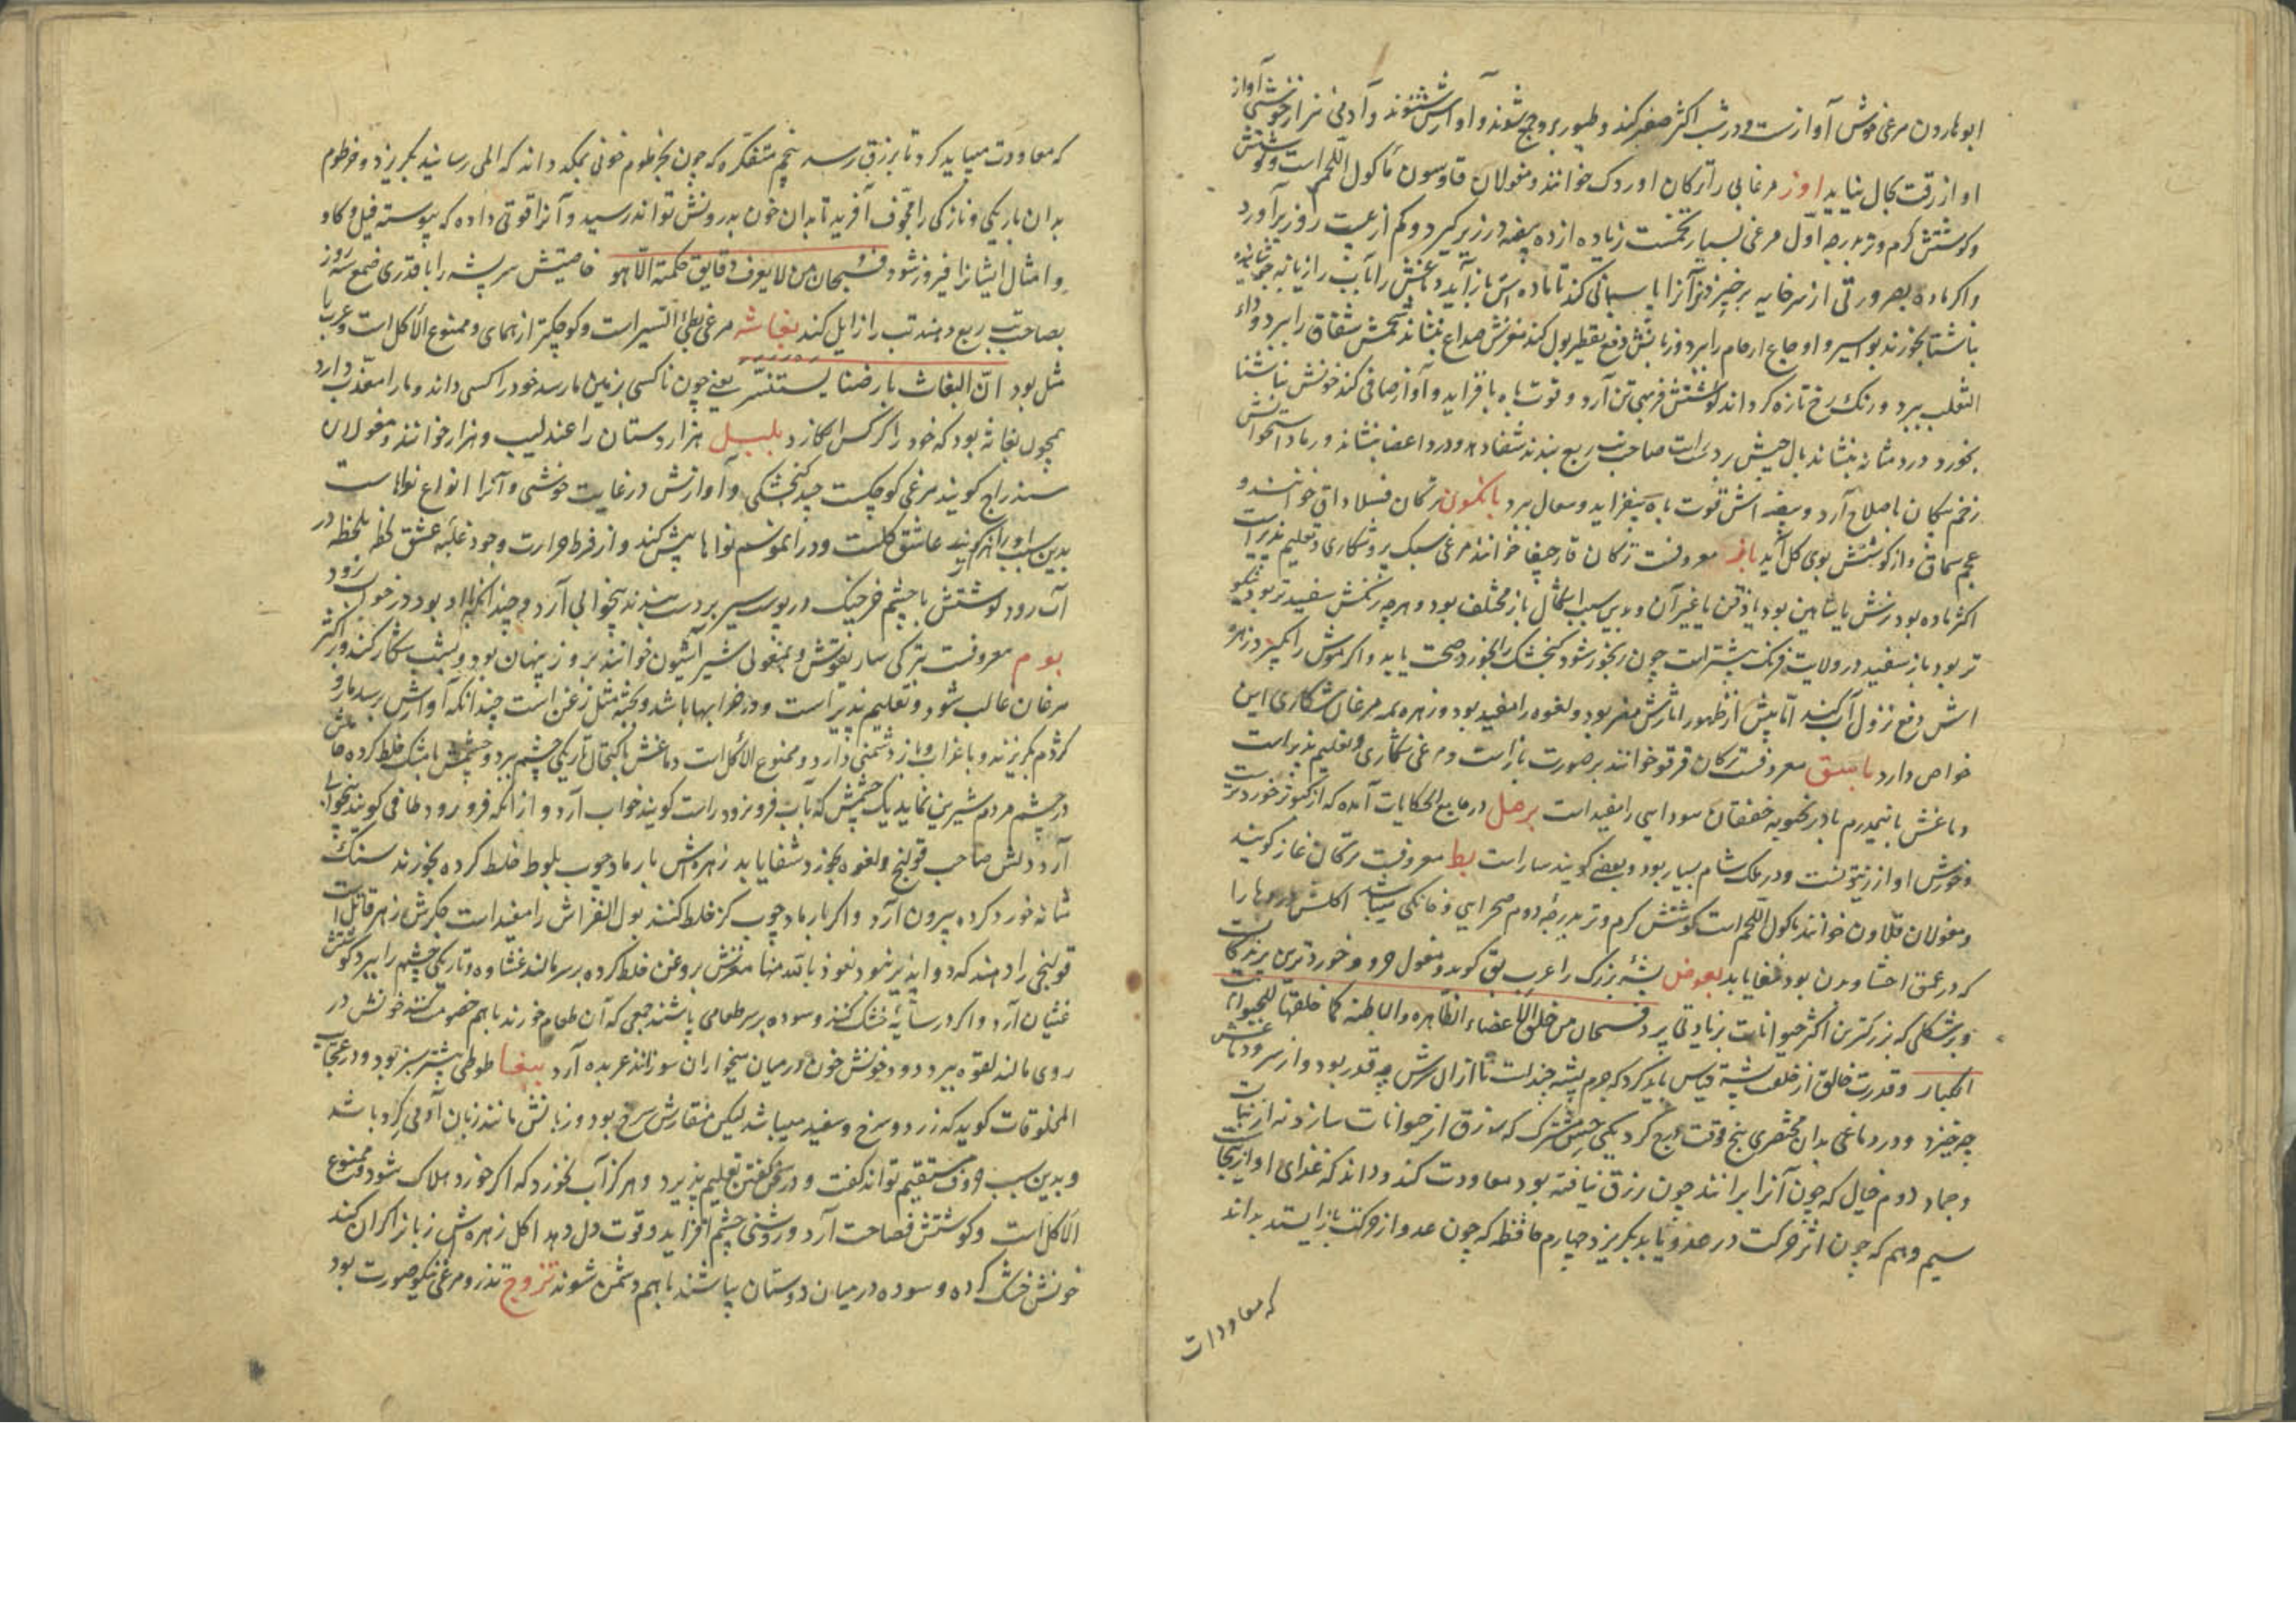 ابوهارون مرغی خوش آوازست و در شب اکثر صفیر کند و طیور برو جمع شوند و آوازش شنوند و آدمی نیز از خوشی آواز
او از رقت کمال نیاید اوز مرغابی را ترکان اوردک خوانند و مغولان قاوسون مأکول اللحم است و گوشتش
و کوشتش کرم و تر بدرجه اول مرغی بسیار تخمست زیاده از ده بیضه در زیر کیرد و کم از بیست روز برآورد
و اکر ماده بضرورتی از سر خایه برخیزد نر آنرا پاسبانی کند تا ماده اش باز آید دماغش را بآب رازیانه جوشانیده
ناشتا بخورند بواسیر و اوجاع ارحام را ببرد و زبانش دفع تقطیر بول کند مغزش صداع بنشاند شحمش شقاق را ببرد و داء
الثعلب ببرد و رنک رخ تازه کرداند کوشتش فربهی تن آرد و قوت باه بافزاید و آواز صافی کند خونش ناشتا
بخورد درد مثانه بنشاند بال چپش بر دست راست صاحب تب ربع بندند شفا دهد و درد اعضا بنشاند و رماد استخوانش
زخم پیکان باصلاح آرد و بیضه اش قوت باه بیفزاید و سعال ببرد
عجم سماق و از کوشتش بوی کل آید باز معروفست ترکان قارچیغا خوانند مرغی سبک پر و شکاری و تعلیم پذیر است
اکثر ماده بود نرش یا شاهین بود یا زقن یا غیر آن و بدین سبب اشکال باز مختلف بود و هرچه رنکش سفیدتر بود نیکو
تر بود باز سفید در ولایت فرنک بیشتر است چون رنجور شود کنجشک را بخورد صحت یابد و اکر موش را بکیرد زهره
اش دفع نزول آب کند اما پیش از ظهور آثارش مفر بود و لغوه را مفید بود و زهره همه مرغان شکاری این
خواص دارد باسق معروفست ترکان قرقو خوانند بر صورت باز است و مرغی شکاری و تعلیم پذیر است
دماغش با نیم درم بادرنجبویه خفقان سودایی را مفید است برصل در جامع الحکایات آمده که از کبوتر خوردترست
و خورش او از زیتونست و در ملک شام بسیار بود و بعضی کویند سار است بط معروفست ترکان غاز کویند
و مغولان قلاون خوانند مأکول اللحم است کوشتش کرم و تر بدرجه دوم صحرایی و خانکی میباشد اکلش دردها را
که در عمق احشاء بدن بود شفا یابد بعوض پشه بزرک را عرب بق کوید و مغول
و بر شکلی که بزرکترین اکثر حیوانات بزیادتی پر فسبحان من خلق الاعضاء الظاهره و الباطنه کما خلقها للحیوان
الکبار و قدرت خالق از خلقت پشه قیاس باید کرد که جرم پشه چند است تا از آن سرش چه قدر بود و از سر و دماغش
چه خیزد و در دماغی بدان مختصری پنج قوت ودیع کرد یکی حس مشترک که رزق از حیوانات سازد نه از نبات
و جماد دوم خیال که چون آنرا برانند چون رزق نیافته بود معاودت کند و داند که غذای او از آنجاست
سیم وهم که چون اثر حرکت در عدو یابد بکریزد چهارم حافظه که چون عدو از حرکت باز ایستد بداند
که معاودت
که معاودت میباید کرد تا برزق رسد پنجم متفکره که چون بخرطوم خونی بمکد داند که المی رسانید بکریزد و خرطوم
بدان باریکی و نازکی را مجوف آفرید تا بدان خون بدرونش تواند رسید و آنرا قوتی داده که پیوسته فیل و کاو
و امثال ایشانرا فیروز شود فسبحان من لا یعرف دقایق حکمته الا هو خاصیتش سر پشه را با قدری صمغ سه روز
بصاحب تب ربع دهند تب را زایل کند بغاثه مرغی بطئ السیر است و کوچکتر از همای و ممنوع الاکل است و عرب را
مثل بود ان البغاث بارضنا یستنسر یعنی چون ناکسی بزمین ما رسد خود را کسی داند و ما را معذب دارد
همچون بغاثه بود که خود را کرکس انکارد بلبل هزاردستان را عندلیب و هزار خوانند و مغولان
سندراج کویند مرغی کوچکست چند کنجشکی و آوازش در غایت خوشی و آنرا انواع نواهاست
بدین سبب او را هزار کویند عاشق کلست و در آن موسم نواها بیش کند و از فرط حرارت وجود غلبه عشق لحظه بلحظه در
آب رود کوشتش با چشم خرچنک در پوست شیر بر دست بندند بیخوابی آرد و چندانکه با او بود در خواب نرود
بوم معروفست بترکی سار یغوش و بمغولی شیر آشیون خوانند بروز پنهان بود و بشب شکار کند و بر اکثر
مرغان غالب شود و تعلیم پذیر است و در خرابیها باشد و بجثه مثل زغن است چندانکه آوازش رسد مار و
کژدم بکریزند و با غراب و باز دشمنی دارد و ممنوع الاکل است دماغش باکتحال تاریکی چشم ببرد و چشمش با مشک خلط کرده حاملش
در چشم مردم شیرین نماید یک چشمش که بآب فرو نرود راست کویند خواب آرد و از آنکه فرو رود طافی کویند بیخوابی
آرد دلش صاحب قولنج و لغوه بخورد شفا یابد زهره اش با رماد چوب بلوط خلط کرده بخورند سنک
مثانه خورد کرده بیرون آرد و اکر با رماد چوب کز خلط کنند بول الفراش را مفید است جکرش زهر قاتل است
قولنجی را دهند که دوا پذیر نبود نعوذ بالله منها مغزش بروغن خلط کرده بر سر مالند غشاوه و تاریکی چشم را ببرد کوشتش
غثیان آرد و اکر در سایه خشک کنند و سوده بر سر طعامی پاشند جمعی که آن طعام خورند با هم خصومت کنند خونش در
روی مالند لقوه ببرد و خونش خون در میان میخواران سوزانند عربده آرد ببغا طوطی بیشتر سبز بود و در عجایب
المخلوقات کوید که زرد و سرخ و سفید میباشد لیکن منقارش سرخ بود و زبانش مانند زبان آدمی کرد باشد
و بدین سبب حروف مستقیم تواند کفت و در سخن کفتن تعلیم پذیرد و هرکز آب نخورد که اکر خورد هلاک شود و ممنوع
الاکل است و کوشتش فصاحت آرد و روشنی چشم افزاید و قوت دل دهد اکل زهره اش زبانرا کران کند
خونش خشک کرده و سوده در میان دوستان بپاشند با هم دشمن شوند تزوج تذرو مرغی نیکو صورت بود